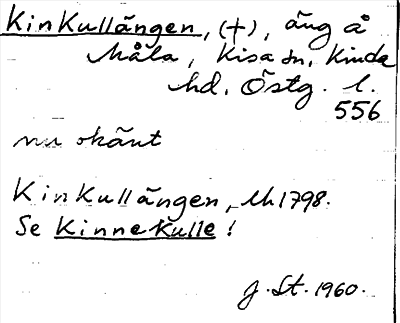 KinKullängen, (+), äng å
Måla, Kisa sn, Kinda
hd, Östg. l.
556
nu okänt
KinKullängen, Lh 1798.
Se KinneKulle!
G. St. 1960.